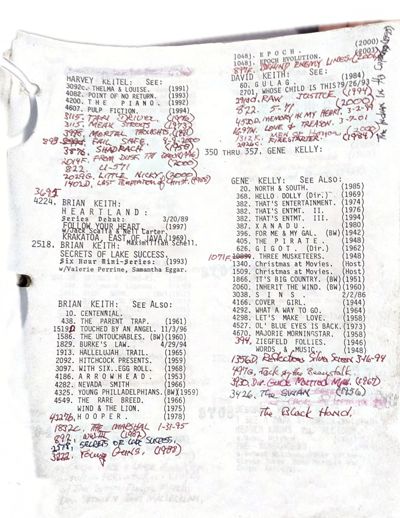 HARVEY KEITEL:  SEE:
3092c. THELMA & LOUISE. (1991)
4082. POINT OF NO RETURN. (1993)
4200. THE PIANO. (1992)
4607. PULP FICTION. (1994)
8115. TAXI DRIVER (1976)
3115. MEAN STREETS (1973)
3998. MORTAL THOUGHTS. (1991)
FAIL SAFE.
3876. SHADRACH. (1998)
2014F. FROM DUSK TIL DAWN
822. U-571 (2000)
2029G. LITTLE NICKY (2000)
1402D. LAST TEMPTATION OF CHRIST. (1988)
4224. BRIAN KEITH:
HEARTLAND:
Series Debut: 3/20/89
FOLLOW YOUR HEART. (1997)
w/Jack Scalia & Nell Carter.
KRAKATOA, EAST OF JAVA. (1969)
Maximilian Schell.
2518. BRIAN KEITH:
SECRETS OF LAKE SUCCESS.
Six Hour Mini-Series: (1993)
w/Valerie Perrine, Samantha Eggar.
BRIAN KEITH:  SEE ALSO:
10. CENTENNIAL.
438. THE PARENT TRAP. (1961)
1519D TOUCHED BY AN ANGEL. 11/3/96
1586. THE UNTOUCHABLES. (BW)(1960)
1829. BURKE'S LAW. 4/29/94
1913. HALLELUJAH TRAIL. (1965)
2092. HITCHCOCK PRESENTS. (1959)
3097. WITH SIX.EGG ROLL. (1968)
4186. ARROWHEAD. (1953)
4282. NEVADA SMITH (1966)
4325. YOUNG PHILLADELPHIANS.(BW)(1959)
4549. THE RARE BREED. (1966)
WIND & THE LION. (1975)
HOOPER. (1978)
1852C. THE MARSHAL 1-31-95
892. WWIII (1982)
2518. SECRETS OF LAKE SUCCESS.
3222. YOUNG GUNS. (1988)
1048j. EPOCH. (2000)
1048j. EPOCH EVOLUTION.
BEHIND ENEMY LINES (2001)
DAVID KEITH:  SEE:
60. GULAG. (1984)
2701. WHOSE CHILD IS THIS?9/26/93
RAW JUSTICE (1994)
822. U-571 (2000)
MEMORY IN MY HEART.
LOVE & TREASON. 2-7-01
MEN OF HONOR (2000)
FIRESTARTER (1984)
350 THRU 357. GENE KELLY:
GENE KELLY:  SEE ALSO:
20. NORTH & SOUTH. (1985)
368. HELLO DOLLY (Dir.) (1969)
382. THAT'S ENTERTAINMENT. (1974)
382. THAT'S ENTMT. II. (1976)
382. THAT'S ENTMT. III. (1994)
387. XANADU. (1980)
396. FOR ME & MY GAL. (BW)(1942)
405. THE PIRATE. (1948)
626. GIGOT. (Dir.) (1962)
THREE MUSKETEERS. (1948)
1340. Christmas at Movies. (Host)
1509. Christmas at Movies. (Host)
1866. IT'S BIG COUNTRY. (BW)(1951)
2060. INHERIT THE WIND. (BW)(1960)
3038. SINS. 2/2/86
4166. COVER GIRL. (1944)
4292. WHAT A WAY TO GO. (1964)
4298. LET'S MAKE LOVE. (1958)
4527. OL' BLUE EYES IS BACK.(1973)
4670. MAJORIE MORNINGSTAR. (1958)
394. ZIEGFELD FOLLIES. (1946)
WORDS & MUSIC. (1948)
1356D. Reflections Silver Screen 3-16-94
497G. Jack of the Beanstalk.
3930. Dir. Guide Married Man. (1967)
3426. The SWAN (1956)
The Black Hand.